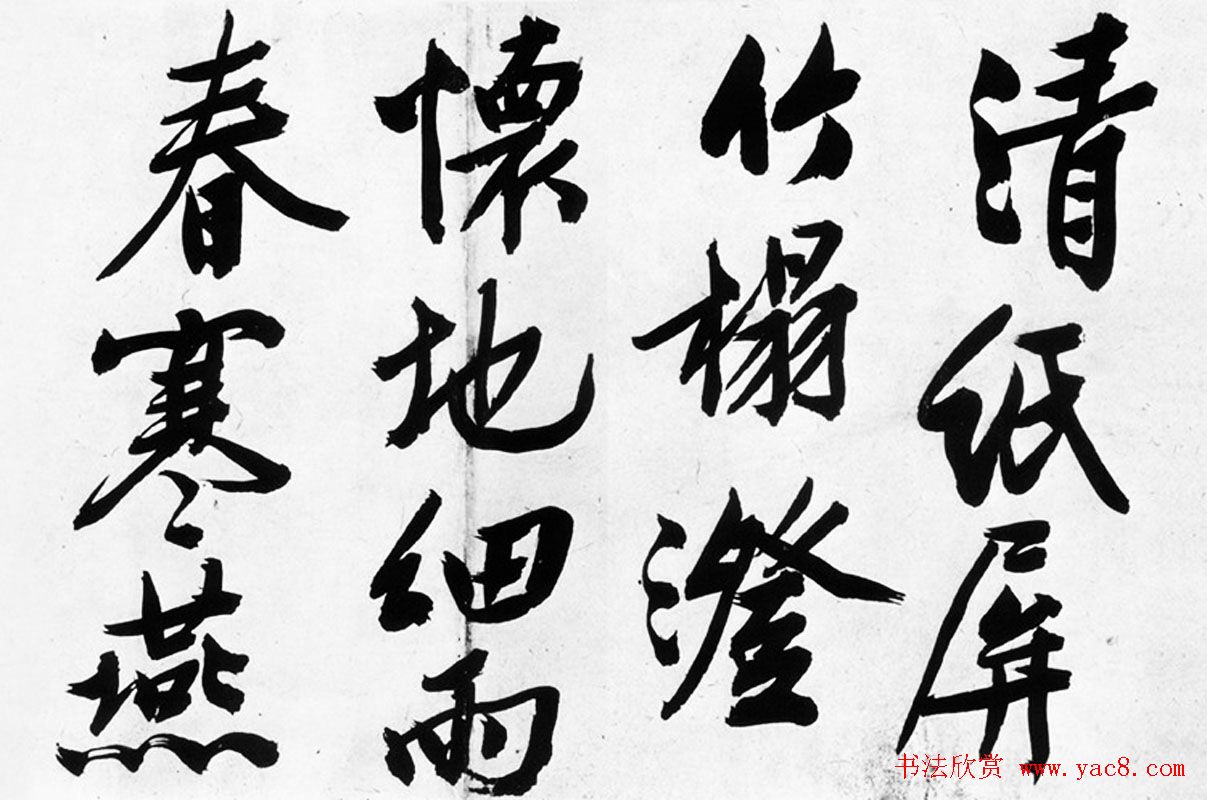 清紙屏
竹榻澄
懷地細雨
春寒燕
书法欣赏 www.yac8.com